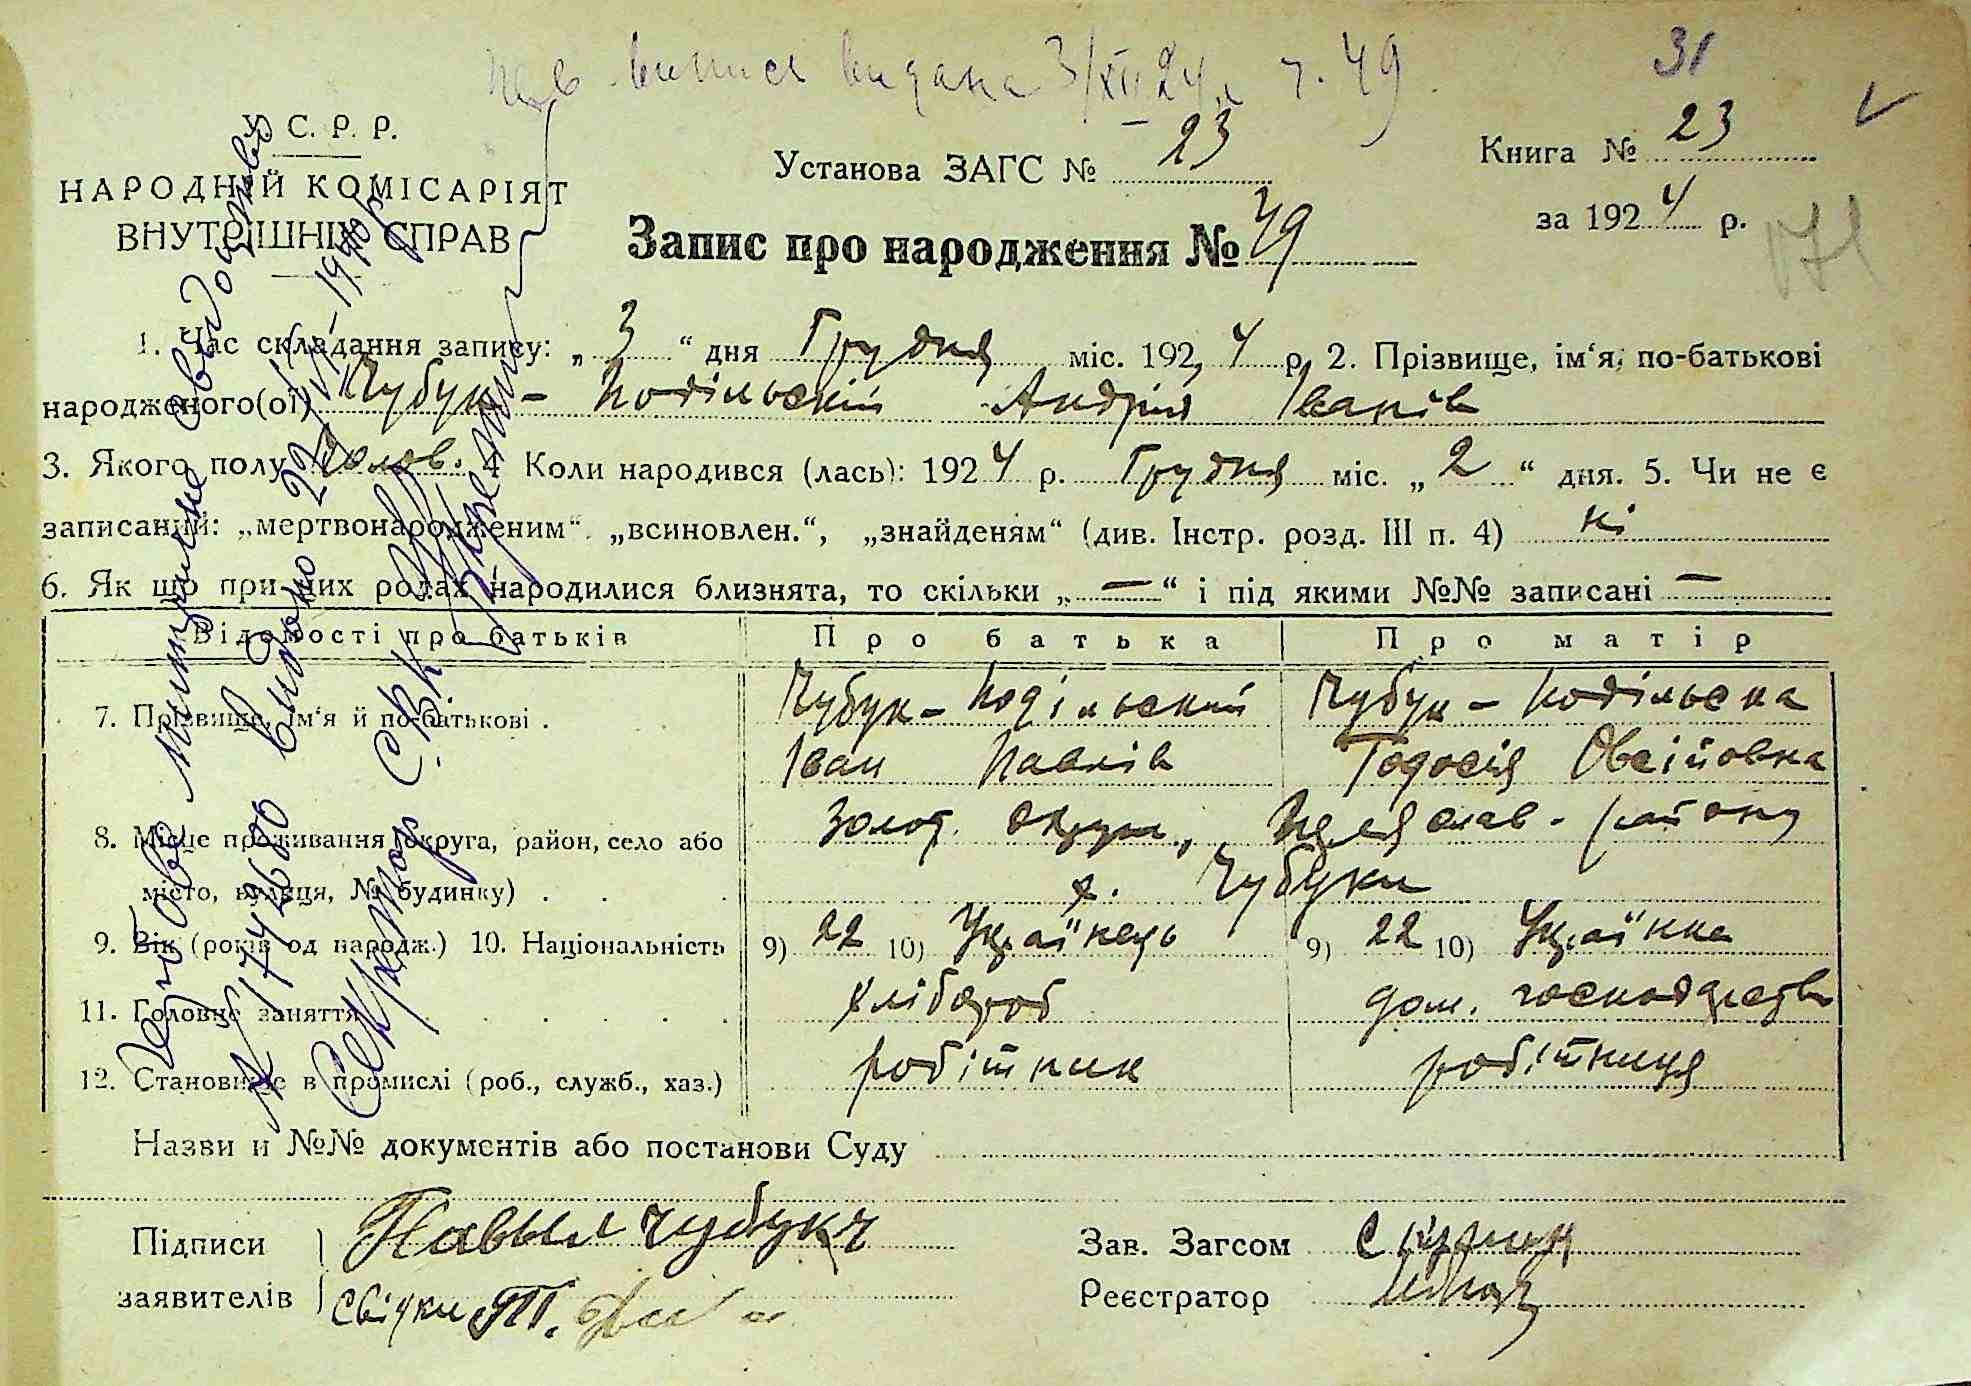 випися видана 3/XII 24 р. ч. 49.
31
У. С. Р. Р.
НАРОДНІЙ КОМІСАРІЯТ
ВНУТРІШНІХ СПРАВ
Установа ЗАГС № 23
Книга № 23
за 1924 р.
171
Запис про народження № 49
1. Час складання запису: „3“ дня Грудня міс. 1924 р. 2. Прізвище, ім‘я, по-батькові
народженого(ої) Чубук-Подільский Андрій Іванів
3. Якого полу чолов. 4 Коли народився (лась): 1924 р. Грудня міс. „2“ дня. 5. Чи не є
записаний: „мертвонародженим“, „всиновлен.“, „знайденям“ (див. Інстр. розд. III п. 4) ні
6. Як що при цих родах народилися близнята, то скільки „—“ і під якими №№ записані —
Відомості про батьків
Про батька
Про матір
7. Прізвище, ім‘я й по-батькові .
Чубук-Подільский
Іван Павлів
Чубук-Подільска
Тодосія Овсійовна
8. Місце проживання (округа, район, село або
місто, вулиця, № будинку) .
Золот. округи, Переяслав. району
х. Чубуки
9. Вік (років од народж.) 10. Національність
9) 22 10) Українець
9) 22 10) Українка
11. Головне заняття
хлібороб
дом. господарство
12. Становище в промислі (роб., служб., хаз.)
робітник
робітниця
Назви и №№ документів або постанови Суду
Підписи
заявителів
Павыл Чубукъ
Свідки П.
Зав. Загсом
Реєстратор
свідоцтво
видано 22/VI-1940 р.
Секретар С.В.К.